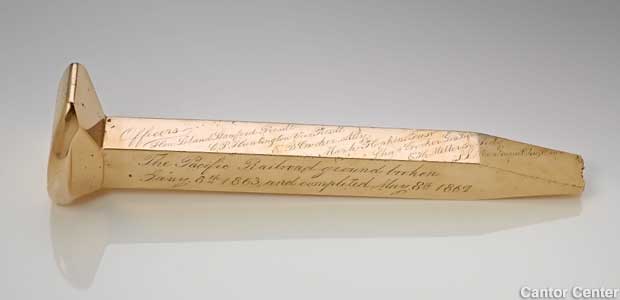 Officers
Hon. Leland Stanford Presdt.
C. P. Huntington Vice Presdt.
E. B. Crocker Atty.
Mark Hopkins Treas
Chas Crocker
E. H. Miller Jr
The Pacific Railroad ground broken
Jany. 8th 1863, and completed May 8th 1869
Cantor Center